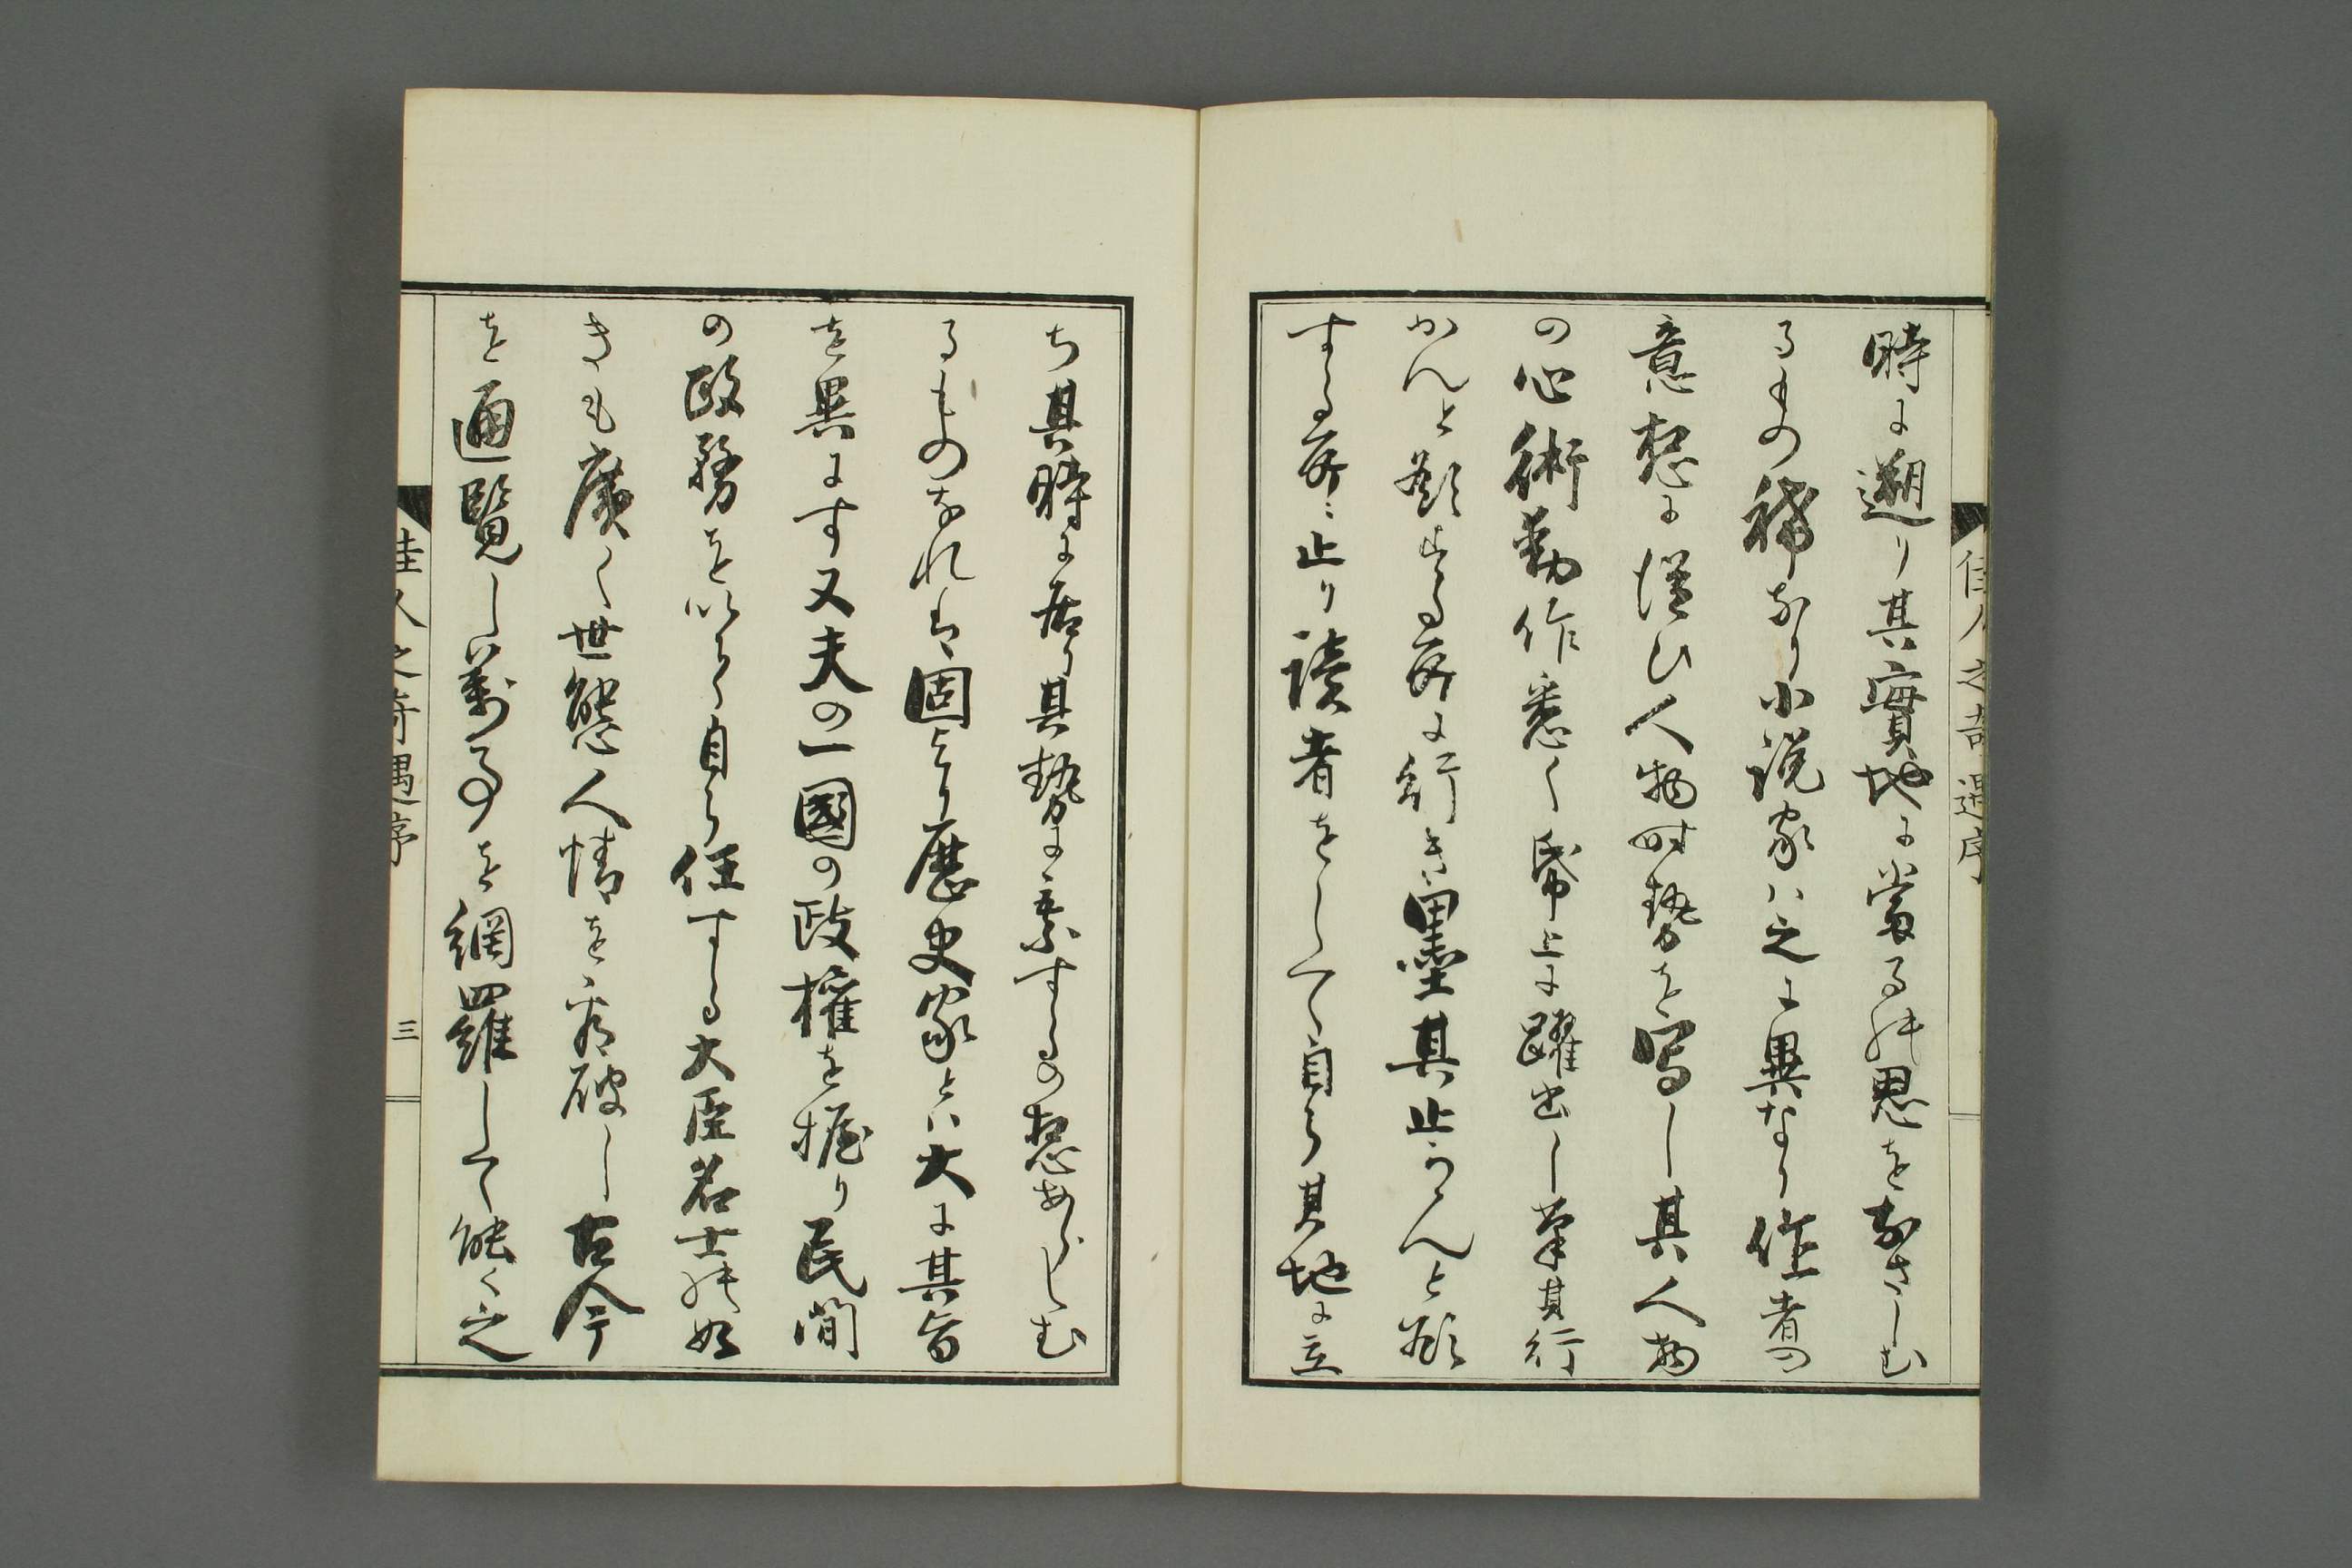 佳人之奇遇序
時に遡り其實地に當るの思をなさしむ
るもの稀なり小説家ハ之に異なり作者の
意想に從ひ人物時勢を寫し其人物
の心術動作悉く帋上に躍出し筆其行
かんと欲する所に行き墨其止らんと欲
する所に止り読者をして自ら其地に立
ち其時に居り其勢に乗するの想あらしむ
るものなれは固より歴史家とハ大に其旨
を異にす又夫の一國の政權を握り民間
の政務を以て自ら任する大臣名士の如
きも廣く世態人情を看破し古今
を通覧し萬事を網羅して能く之
佳人之奇遇序
三